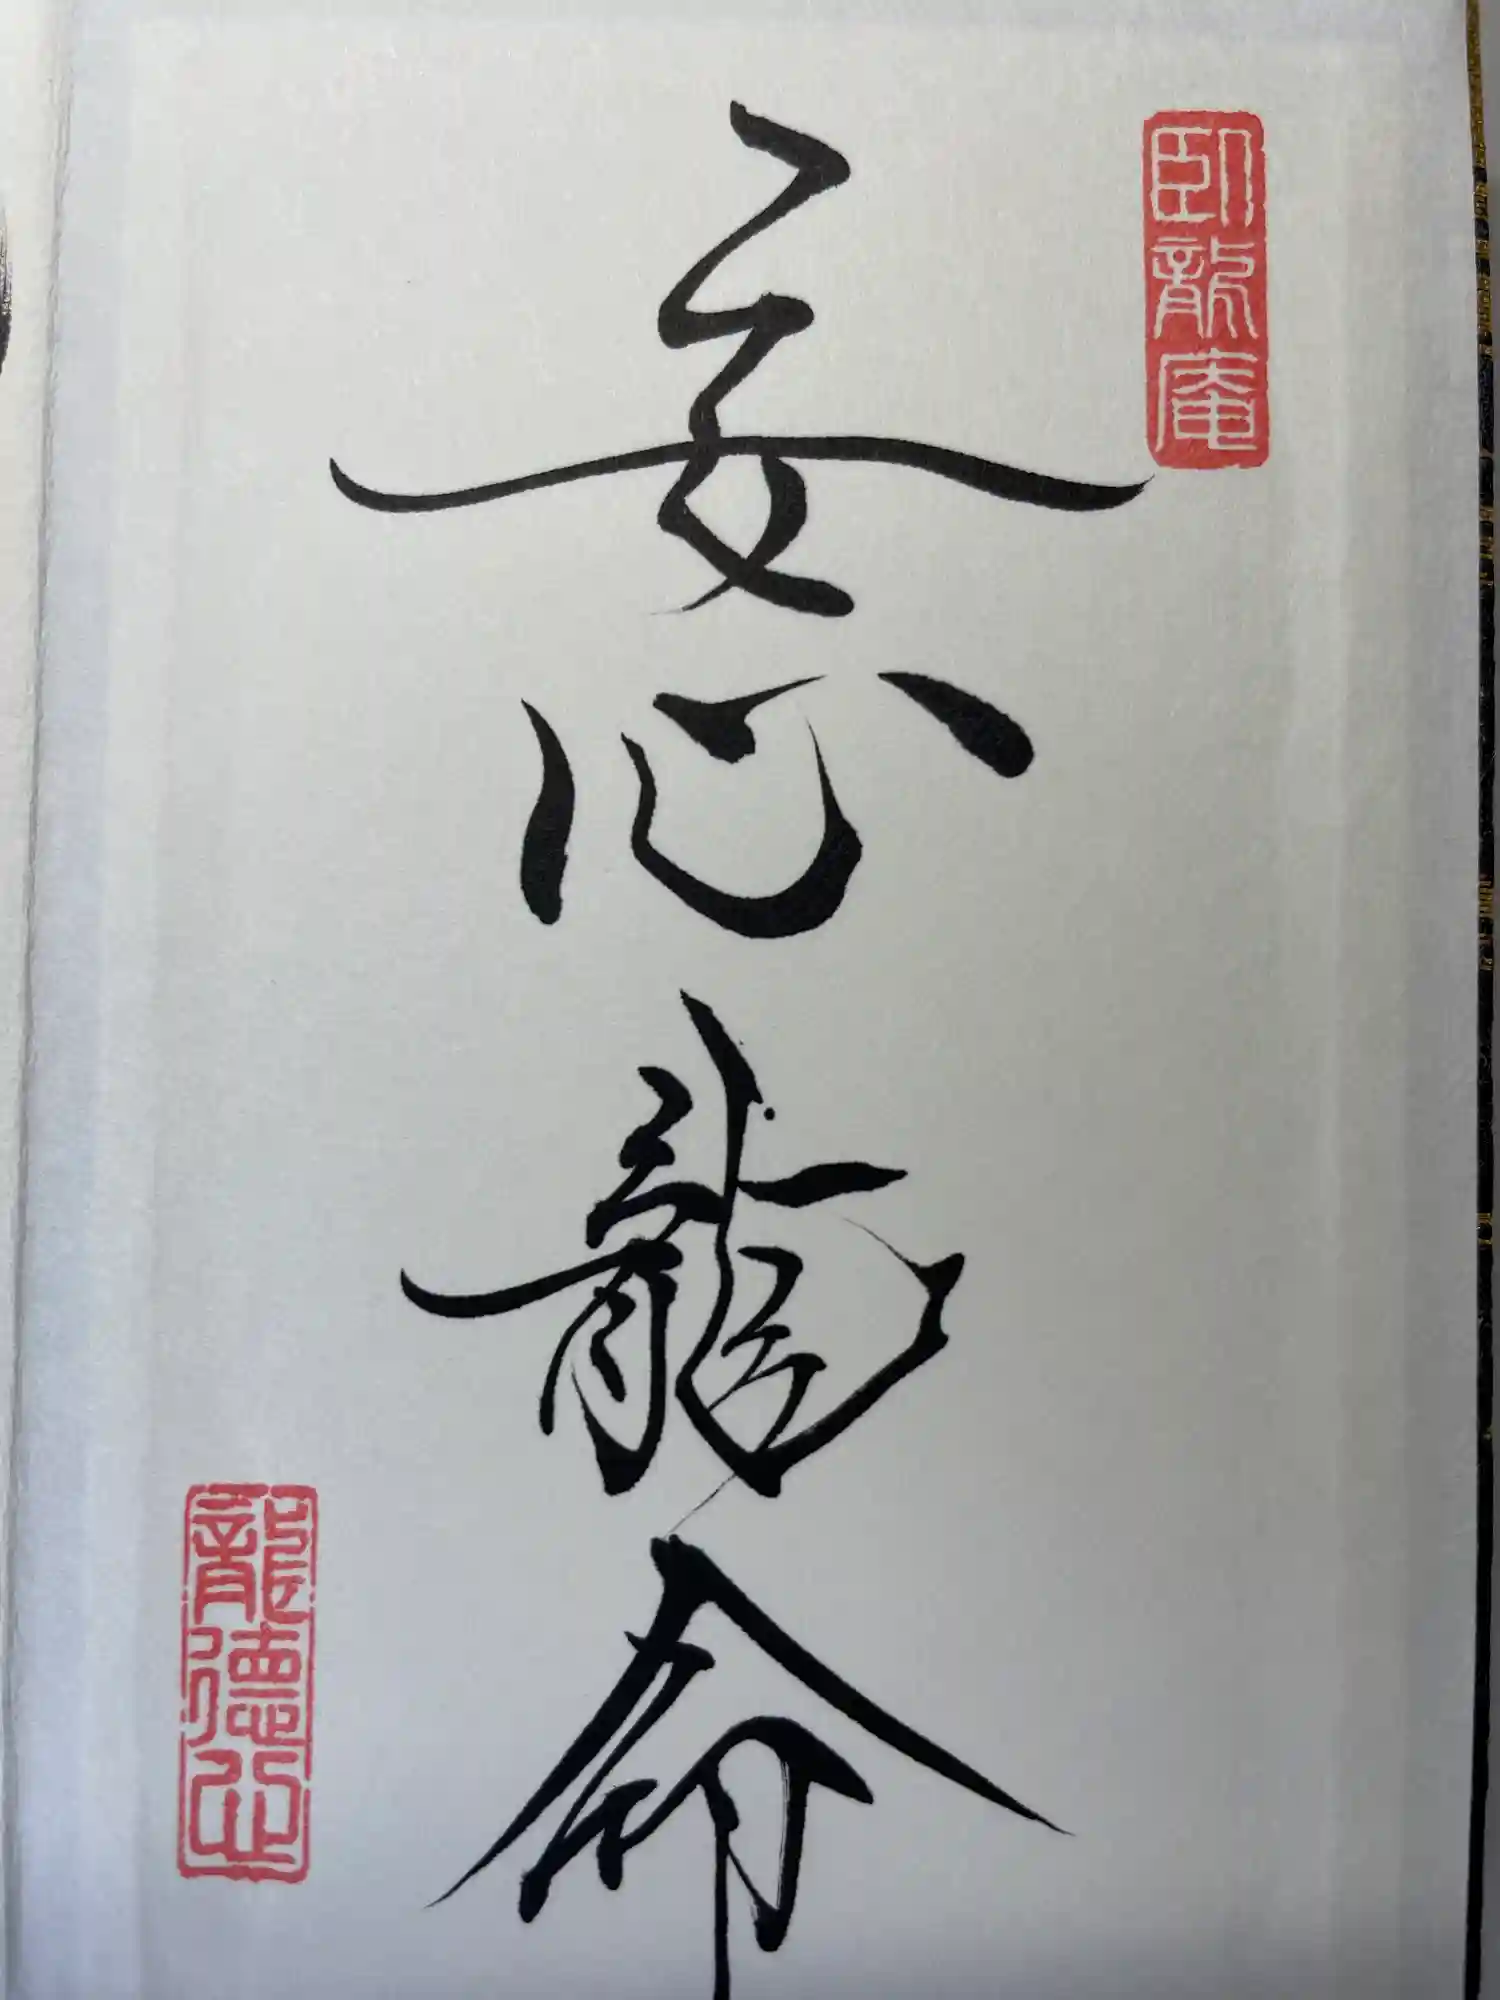 臥龍庵
安心龍命
龍徳